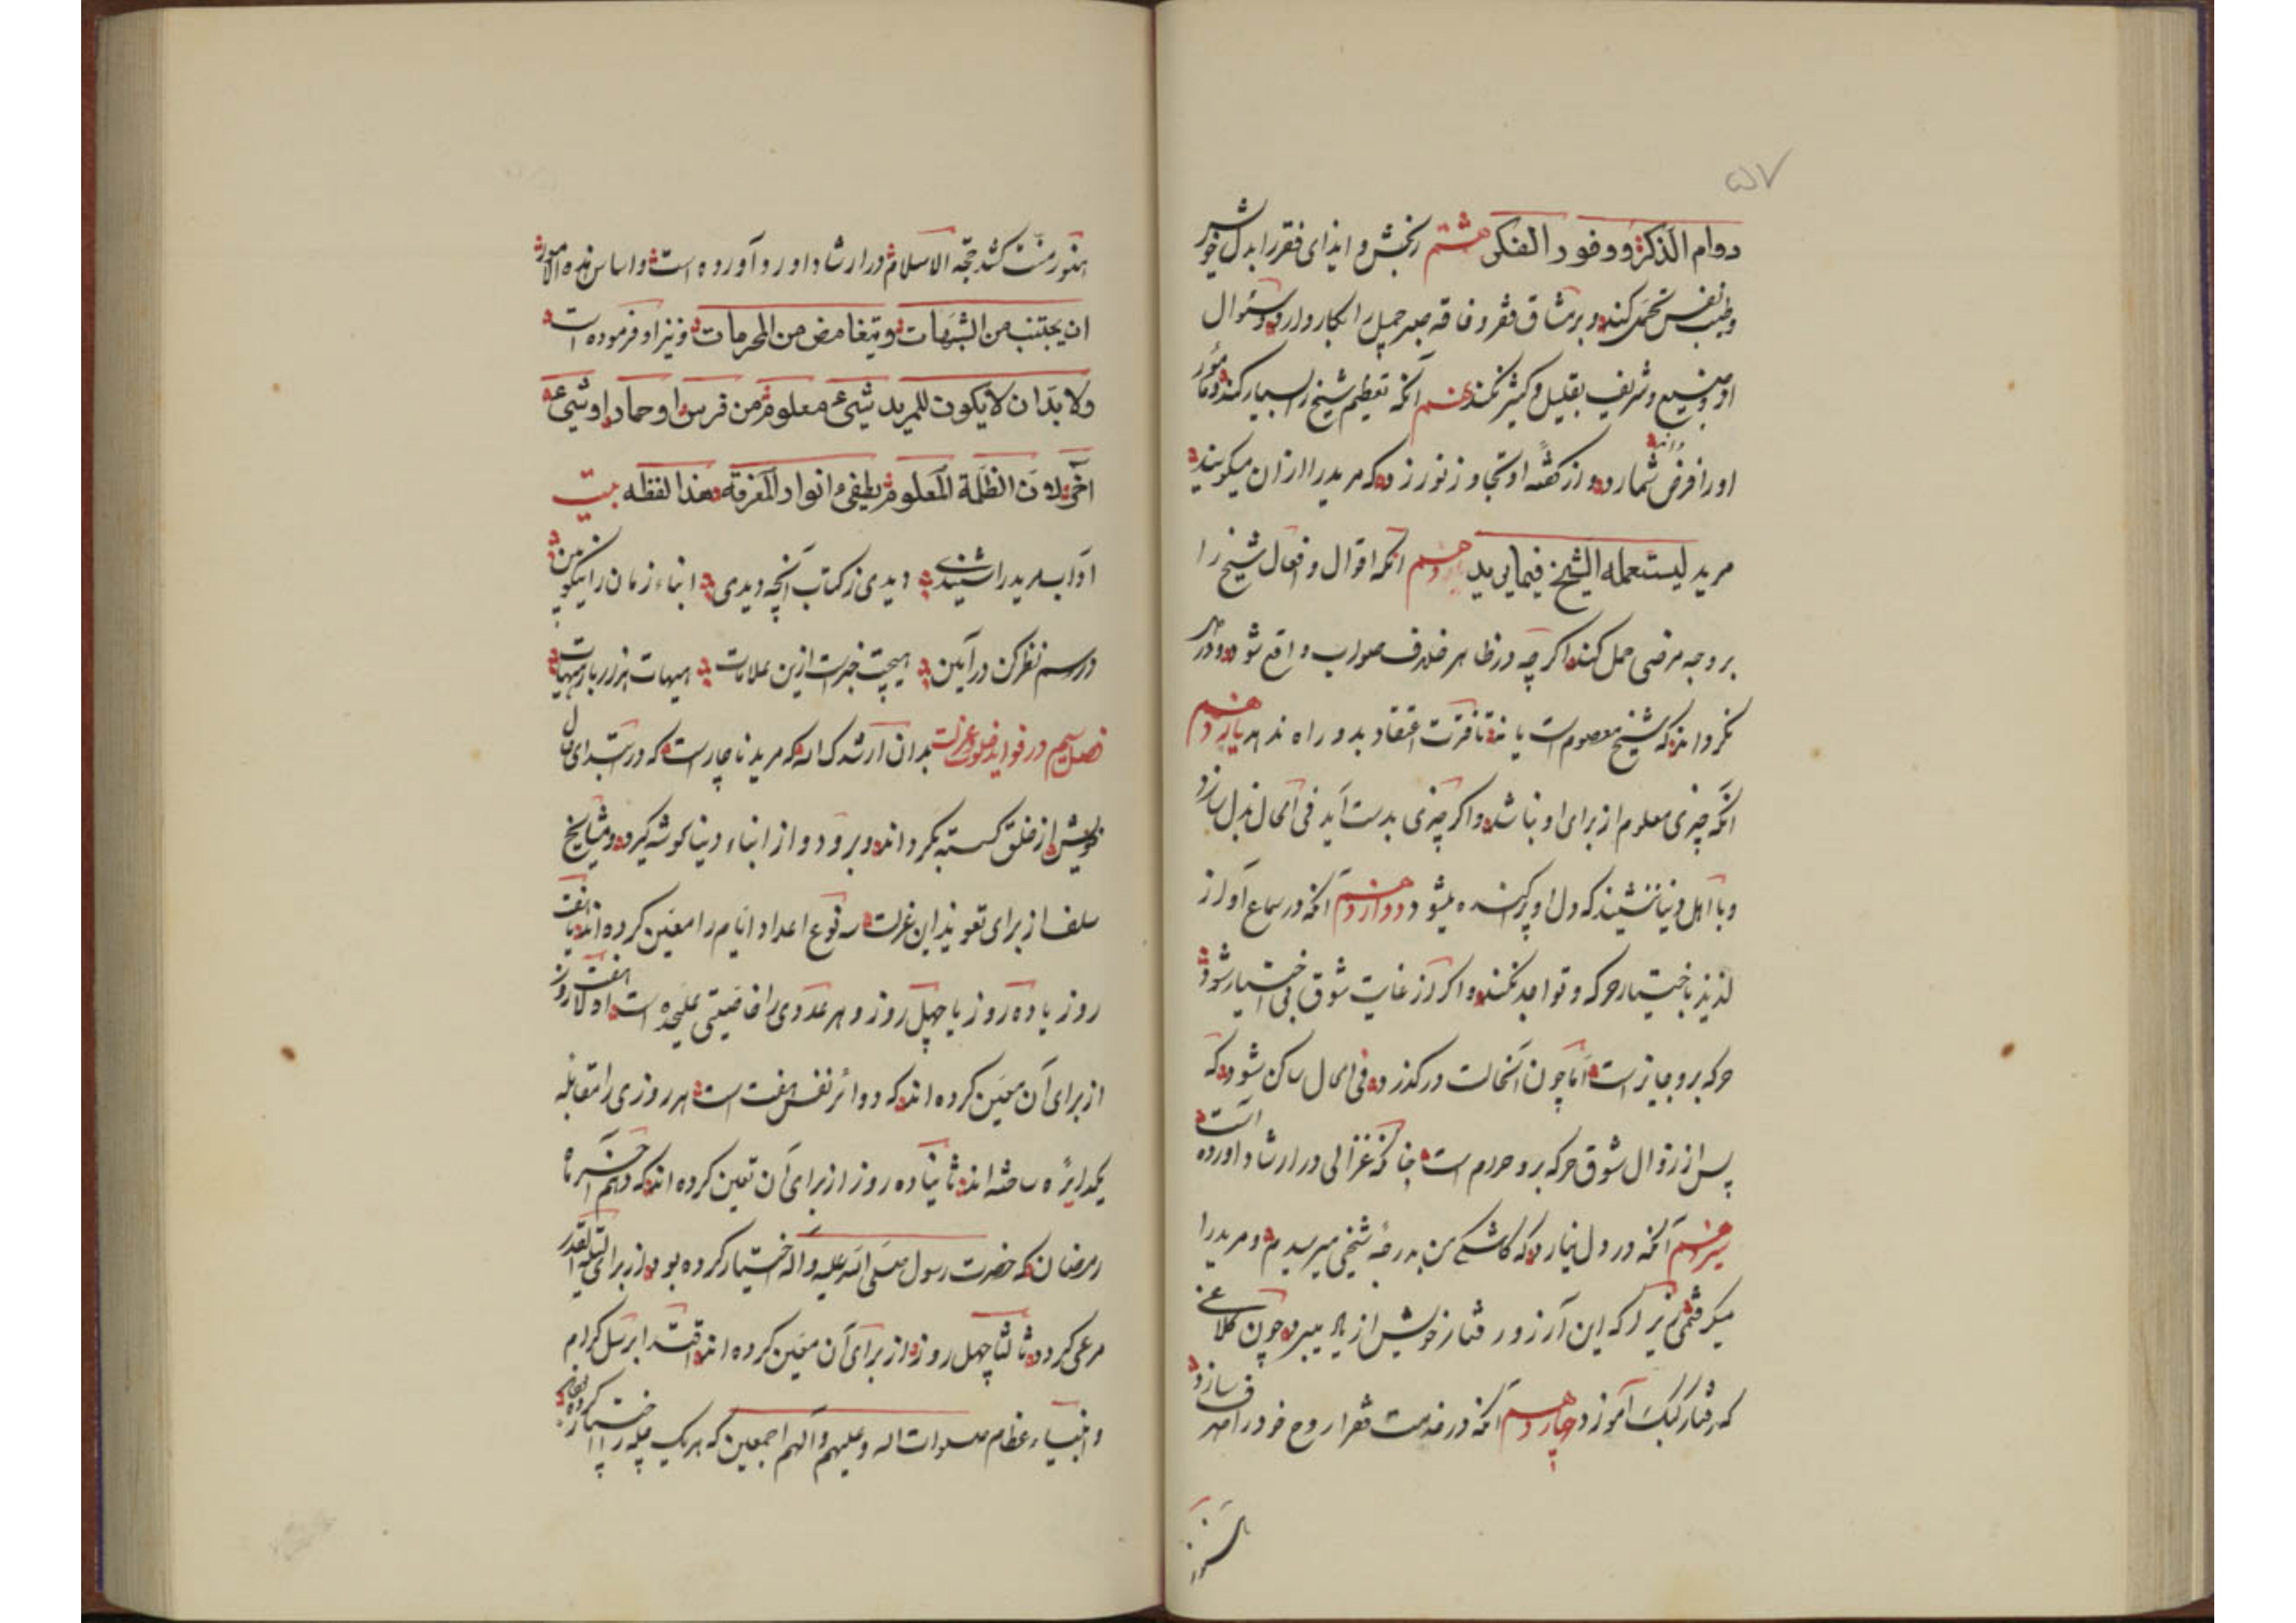 ۵۷
دوام الذکر و وفور الفکر هشتم رنجش و ایذای فقر را بدل خوش
و طیب نفس تحمل کند و بر مشاق فقر و فاقه صبر جمیل را بکار دارد و سئوال
از وضیع و شریف بقلیل و کثیر نکند نهم آنکه تعظیم شیخ را بسیار کند و مأمور
او را فرض شمارد و از گفته او تجاوز نورزد که مرید را ارزان میگویند
مرید لیستعمله الشیخ فیما یرید دهم آنکه اقوال و افعال شیخ را
بر وجه مرضی حمل کند اگر چه در ظاهر خلاف صواب واقع شود و در
نگرداند که شیخ معصوم است یا نه تا فترت اعتقاد بدو راه ندهد یازدهم
آنکه چیزی معلوم از برای او نباشد و اگر چیزی بدست آید فی الحال بذل سازد
و با اهل دنیا ننشیند که دل او پراکنده میشود دوازدهم آنکه در سماع آواز
لذیذ باختیار حرکه و تواجد نکند و اگر از غایت شوق بی اختیار شود
حرکه برو جایز است اما چون آنحالت درگذرد فی الحال ساکن شود که
پس از زوال شوق حرکه برو حرام است چنانکه غزالی در ارشاد آورده است
سیزدهم آنکه در دل نیارد که کاشکی من بدرجهٔ شیخی میرسیدم و مرید را
میگرفتمی زیرا که این آرزو رفتار خویش از یاد ببرد چون کلاغی
که رفتار کبک آموزد چهاردهم آنکه در خدمت فقرا روح خود را صرف سازد
هنوز منت کشد حجة الاسلام در ارشاد اورد آورده است و اساس هذه الامور
ان یجتنب من الشبهات و یتغامض من المحرمات و نیز او فرموده است
ولا بد ان لا یکون للمرید شیء معلوم من فرس او حمار او شیء
آخر لان الظلمة المعلوم یطفیء انوار المعرفة هذا لفظه بیت
آداب مرید را شنیدی دیدی ز کتاب آنچه دیدی ابناء زمان را نیکو بین
در رسم نظر کن در آیین هیچت خبر است ازین علامات هیهات هزار بار هیهات
فصل سیم در فواید خلوت و عزلت بدان ارشدک اله که مرید ناچار است که در ابتدای
خویش از خلق گسسته گرداند و برود و از ابناء دنیا گوشه گیرد و مشایخ
سلف از برای تعوید این عزلت سه نوع اعداد ایام را معین کرده اند یا هفت
روز یا ده روز یا چهل روز و هر عددی را خاصیتی علیحده است اولا هفت روز
از برای آن معین کرده اند که دوائر نفس هفت است هر روزی را مقابله
یکدایره ساخته اند ثانیا ده روز از برای آن تعین کرده اند که دهم آخر ماه
رمضان که حضرت رسول صلی الله علیه و آله اختیار کرده بود از برای لیلة القدر
مرعی کردد ثالثا چهل روز از برای آن معین کرده اند اقتدا برسل کرام
و انبیاء عظام صلوات اله و علیهم و آلهم اجمعین که هر یک چله را اختیار کرده‌اند